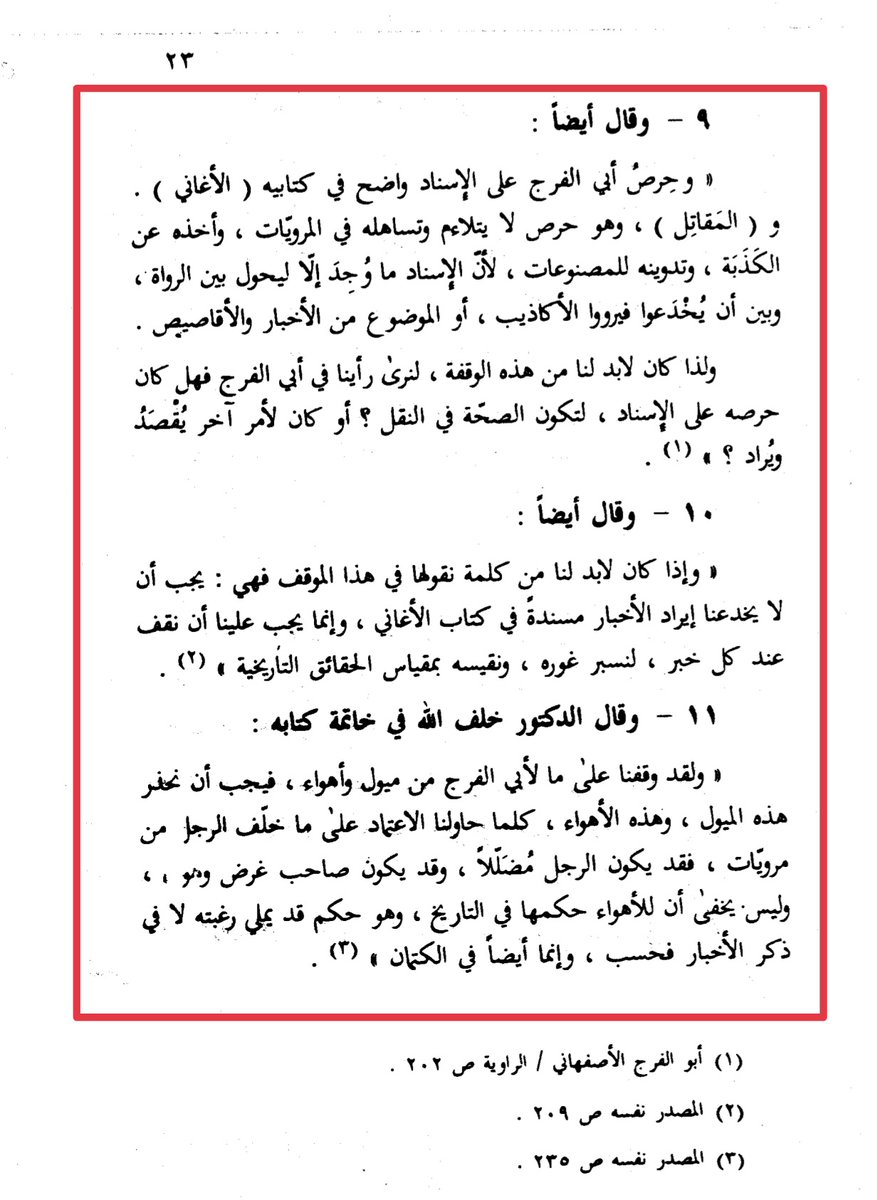 ٢٣
٩ - وقال أيضاً :
« وحِرصُ أبي الفرج على الإسناد واضح في كتابيه ( الأغاني ) .
و ( المَقاتِل ) ، وهو حرص لا يتلاءم وتساهله في المرويّات ، وأخذه عن
الكَذَبَة ، وتدوينه للمصنوعات ، لأنّ الإسناد ما وُجِدَ إلّا ليحول بين الرواة ،
وبين أن يُخْدَعوا فيرووا الأكاذيب ، أو الموضوع من الأخبار والأقاصيص .
ولذا كان لابد لنا من هذه الوقفة ، لنرىٰ رأينا في أبي الفرج فهل كان
حرصه على الإسناد ، لتكون الصحّة في النقل ؟ أو كان لأمر آخر يُقْصَدُ
ويُراد ؟ » (١) .
١٠ - وقال أيضاً :
« وإذا كان لابد لنا من كلمة نقولها في هذا الموقف فهي : يجب أن
لا يخدعنا إيراد الأخبار مسندةً في كتاب الأغاني ، وإنما يجب علينا أن نقف
عند كل خبر ، لنسبر غوره ، ونقيسه بمقياس الحقائق التأريخية » (٢) .
١١ - وقال الدكتور خلف الله في خاتمة كتابه :
« ولقد وقفنا علىٰ ما لأبي الفرج من ميول وأهواء ، فيجب أن نحذر
هذه الميول ، وهذه الأهواء ، كلما حاولنا الاعتماد علىٰ ما خلّف الرجل من
مرويّات ، فقد يكون الرجل مُضَلّلاً ، وقد يكون صاحب غرض ، ،
وليس يخفىٰ أن للأهواء حكمها في التاريخ ، وهو حكم قد يملي رغبته لا في
ذكر الأخبار فحسب ، وإنما أيضاً في الكتمان » (٣) .
(١) أبو الفرج الأصفهاني / الراوية ص ٢٠٢ .
(٢) المصدر نفسه ص ٢٠٩ .
(٣) المصدر نفسه ص ٢٣٥ .